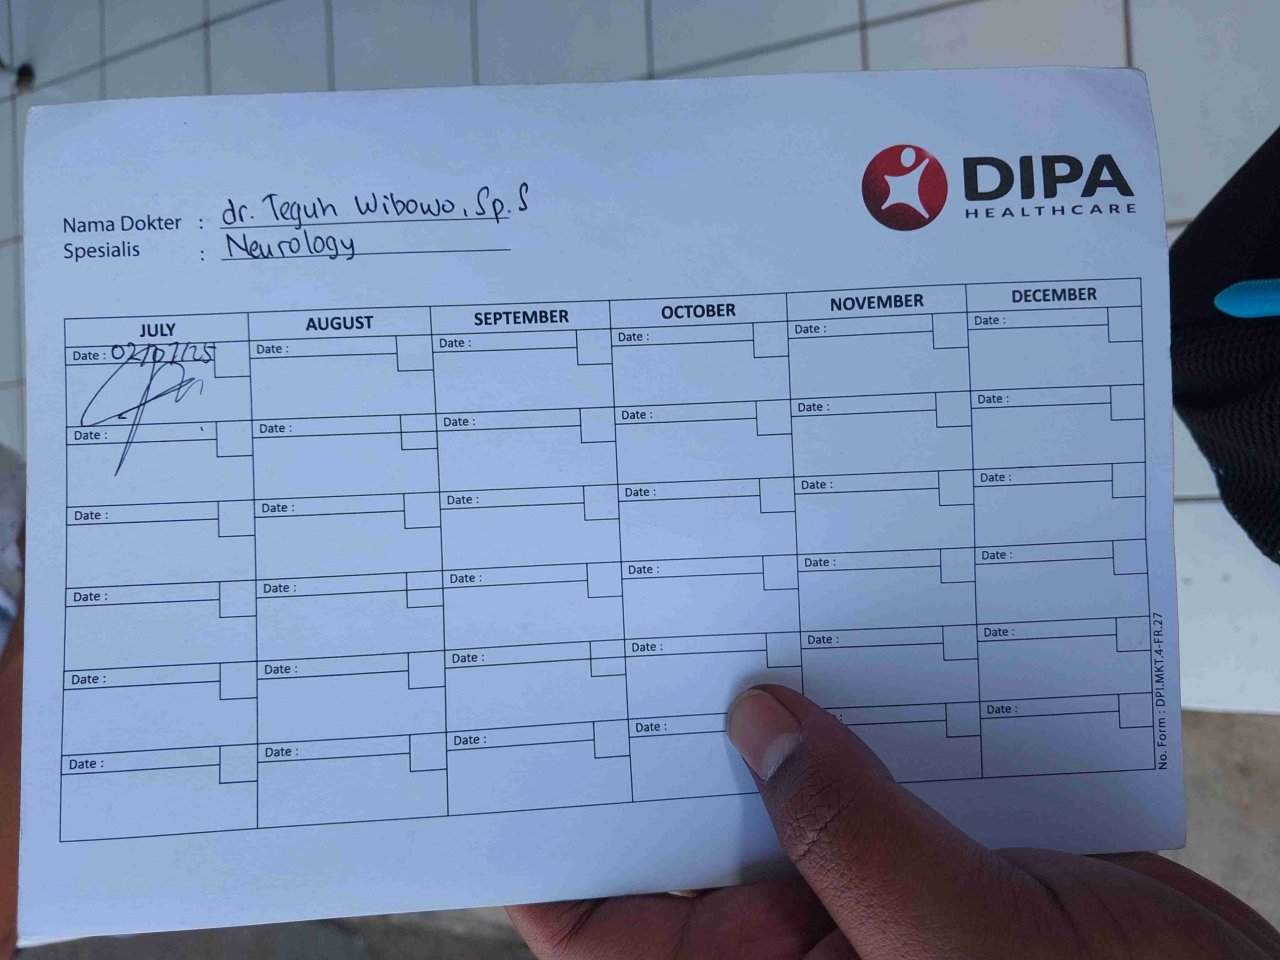 DIPA
HEALTHCARE
Nama Dokter : dr. Teguh Wibowo, Sp.S
Spesialis : Neurology
JULY AUGUST SEPTEMBER OCTOBER NOVEMBER DECEMBER
Date : 02/07/25 Date : Date : Date : Date : Date :
Date : Date : Date : Date : Date : Date :
Date : Date : Date : Date : Date : Date :
Date : Date : Date : Date : Date : Date :
Date : Date : Date : Date : Date : Date :
Date : Date : Date : Date : : Date :
No. Form : DPI.MKT.4-FR.27